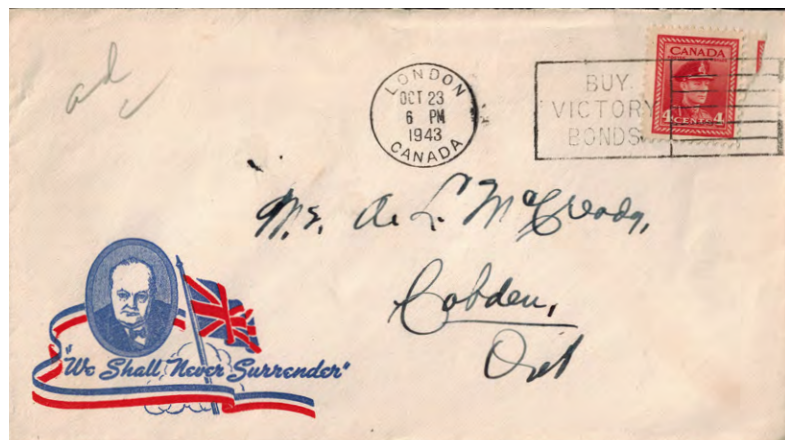 ad
LONDON
OCT 23
6 PM
1943
CANADA
BUY
VICTORY
BONDS
CANADA
4 CENTS 4
Mr. A. L. McCready,
Cobden,
Ont
"We Shall Never Surrender"